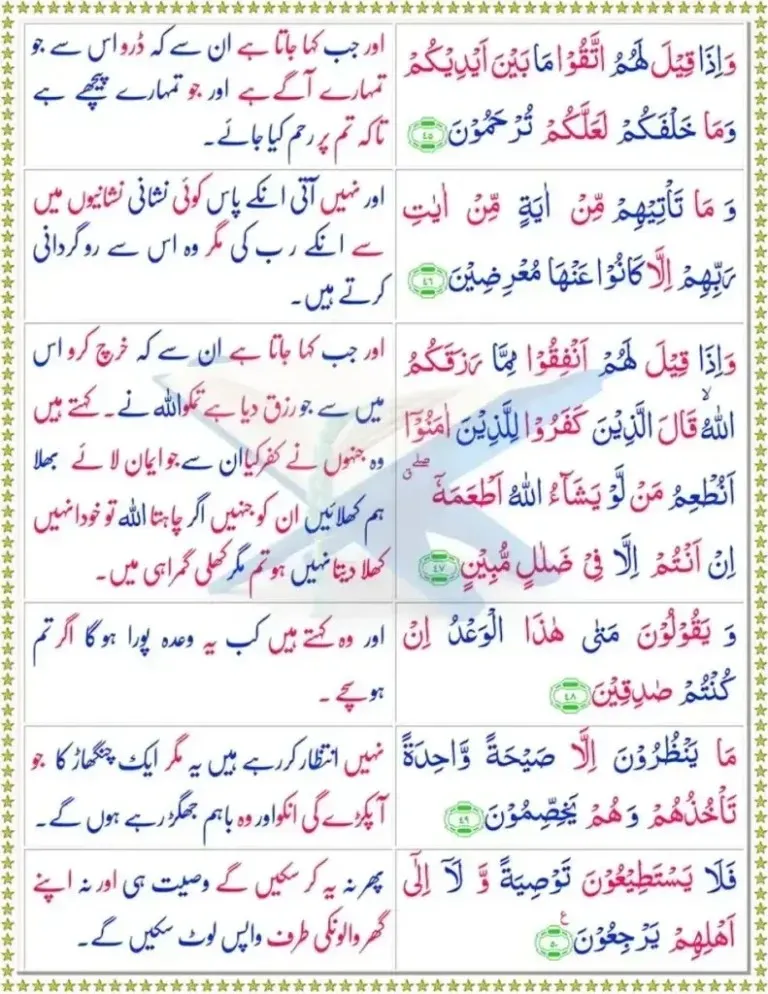 وَاِذَا قِيْلَ لَهُمُ اتَّقُوْا مَا بَيْنَ اَيْدِيْكُمْ
وَمَا خَلْفَكُمْ لَعَلَّكُمْ تُرْحَمُوْنَ ﴿۴۵﴾
اور جب کہا جاتا ہے ان سے کہ ڈرو اس سے جو
تمہارے آگے ہے اور جو تمہارے پیچھے ہے
تاکہ تم پر رحم کیا جائے۔
وَ مَا تَاْتِيْهِمْ مِّنْ اٰيَةٍ مِّنْ اٰيٰتِ
رَبِّهِمْ اِلَّا كَانُوْا عَنْهَا مُعْرِضِيْنَ ﴿۴۶﴾
اور نہیں آتی انکے پاس کوئی نشانی نشانیوں میں
سے انکے رب کی مگر وہ اس سے روگردانی
کرتے ہیں۔
وَاِذَا قِيْلَ لَهُمْ اَنْفِقُوْا مِمَّا رَزَقَكُمُ
اللّٰهُ ۙ قَالَ الَّذِيْنَ كَفَرُوْا لِلَّذِيْنَ اٰمَنُوْۤا
اَنُطْعِمُ مَنْ لَّوْ يَشَآءُ اللّٰهُ اَطْعَمَهٗۤ ۖۗ
اِنْ اَنْتُمْ اِلَّا فِيْ ضَلٰلٍ مُّبِيْنٍ ﴿۴۷﴾
اور جب کہا جاتا ہے ان سے کہ خرچ کرو اس
میں سے جو رزق دیا ہے تمکو اللہ نے۔ کہتے ہیں
وہ جنہوں نے کفر کیا ان سے جو ایمان لائے بھلا
ہم کھلائیں ان کو جنہیں اگر چاہتا اللہ تو خود انہیں
کھلا دیتا نہیں ہو تم مگر کھلی گمراہی میں۔
وَ يَقُوْلُوْنَ مَتٰى هٰذَا الْوَعْدُ اِنْ
كُنْتُمْ صٰدِقِيْنَ ﴿۴۸﴾
اور وہ کہتے ہیں کب یہ وعدہ پورا ہو گا اگر تم
ہو سچے۔
مَا يَنْظُرُوْنَ اِلَّا صَيْحَةً وَّاحِدَةً
تَاْخُذُهُمْ وَهُمْ يَخِصِّمُوْنَ ﴿۴۹﴾
نہیں انتظار کر رہے ہیں یہ مگر ایک چنگھاڑ کا جو
آ پکڑے گی انکو اور وہ باہم جھگڑ رہے ہوں گے۔
فَلَا يَسْتَطِيْعُوْنَ تَوْصِيَةً وَّ لَاۤ اِلٰٓى
اَهْلِهِمْ يَرْجِعُوْنَ ﴿۵۰﴾ ع
پھر نہ یہ کر سکیں گے وصیت ہی اور نہ اپنے
گھر والونکی طرف واپس لوٹ سکیں گے۔